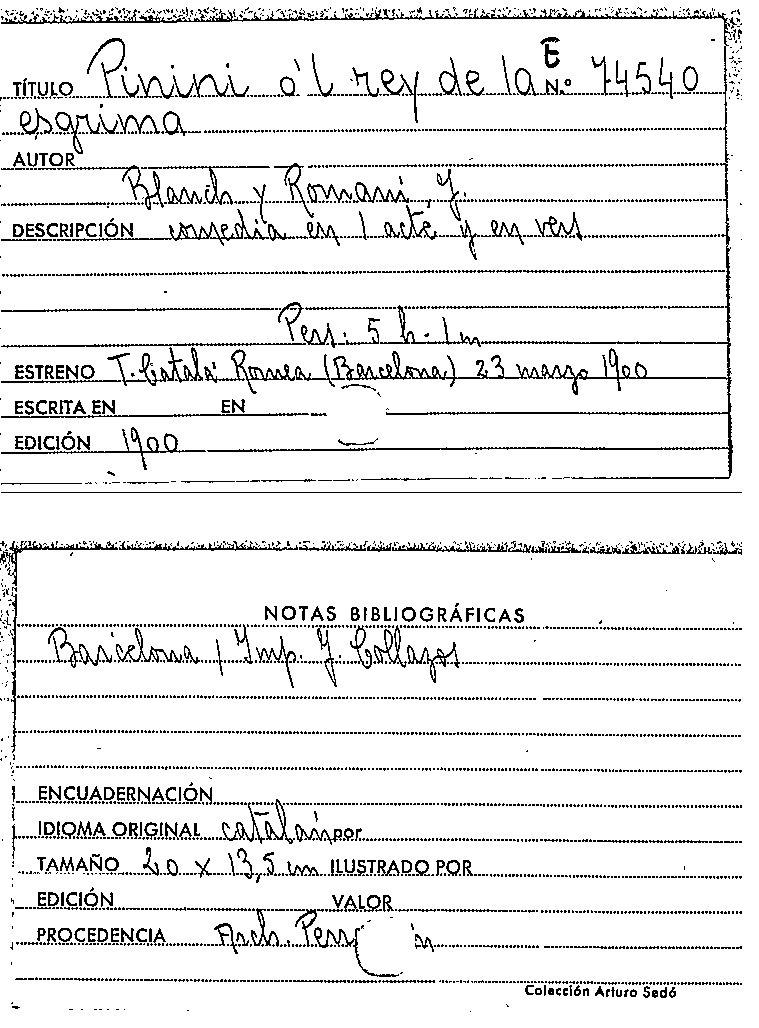 TÍTULO Pinini ó'l rey de la E N.º 74540
esgrima
AUTOR
Blanch y Romaní, J.
DESCRIPCIÓN comedia en 1 acte y en vers
Pers: 5 h. 1 m
ESTRENO T. Catalá Romea (Barcelona) 23 marzo 1900
ESCRITA EN EN
EDICIÓN 1900
NOTAS BIBLIOGRÁFICAS
Barcelona / Imp. J. Collazos
ENCUADERNACIÓN
IDIOMA ORIGINAL catalán por
TAMAÑO 20 x 13,5 cm ILUSTRADO POR
EDICIÓN VALOR
PROCEDENCIA Arch.
Colección Arturo Sedó